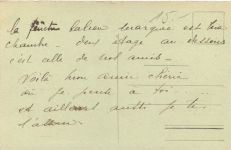 15.
la fenêtre balcon marquée est ma
chambre - deux étage au dessous
c'est celle de nos amis -
Voilà mon amie chérie
où je pense à toi . . . .
et ailleurs aussi je te
l'assure